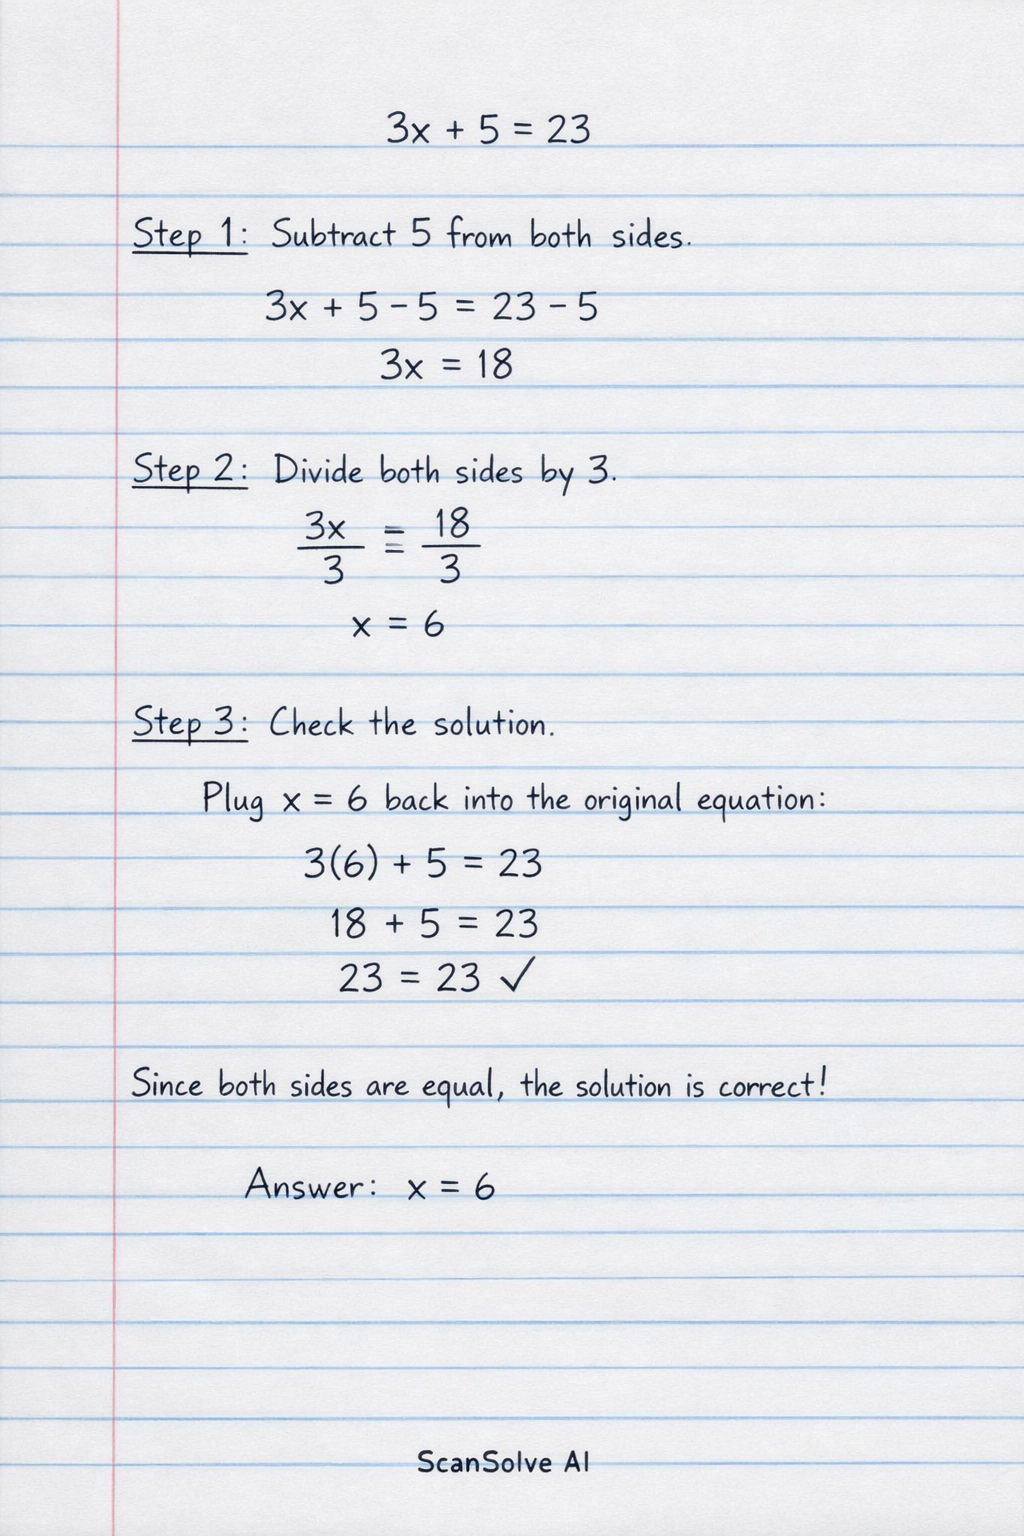 3x + 5 = 23
Step 1: Subtract 5 from both sides.
3x + 5 - 5 = 23 - 5
3x = 18
Step 2: Divide both sides by 3.
3x/3 = 18/3
x = 6
Step 3: Check the solution.
Plug x = 6 back into the original equation:
3(6) + 5 = 23
18 + 5 = 23
23 = 23 ✓
Since both sides are equal, the solution is correct!
Answer: x = 6
ScanSolve AI